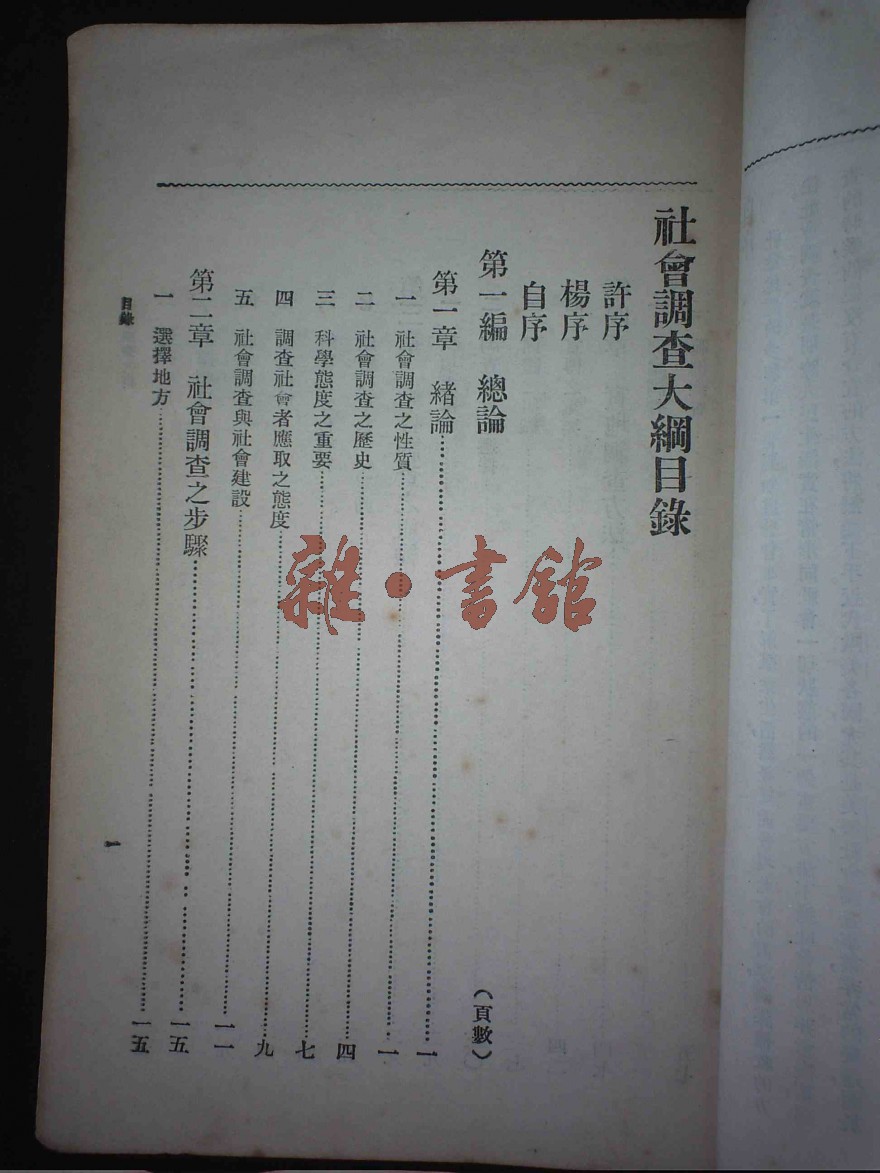 社會調查大綱目錄
許序
楊序
自序
第一編　總論　（頁數）
第一章　緒論……一
一　社會調查之性質……一
二　社會調查之歷史……四
三　科學態度之重要……七
四　調查社會者應取之態度……九
五　社會調查與社會建設……一一
第二章　社會調查之步驟……一五
一　選擇地方……一五
目錄
一
雜·書館